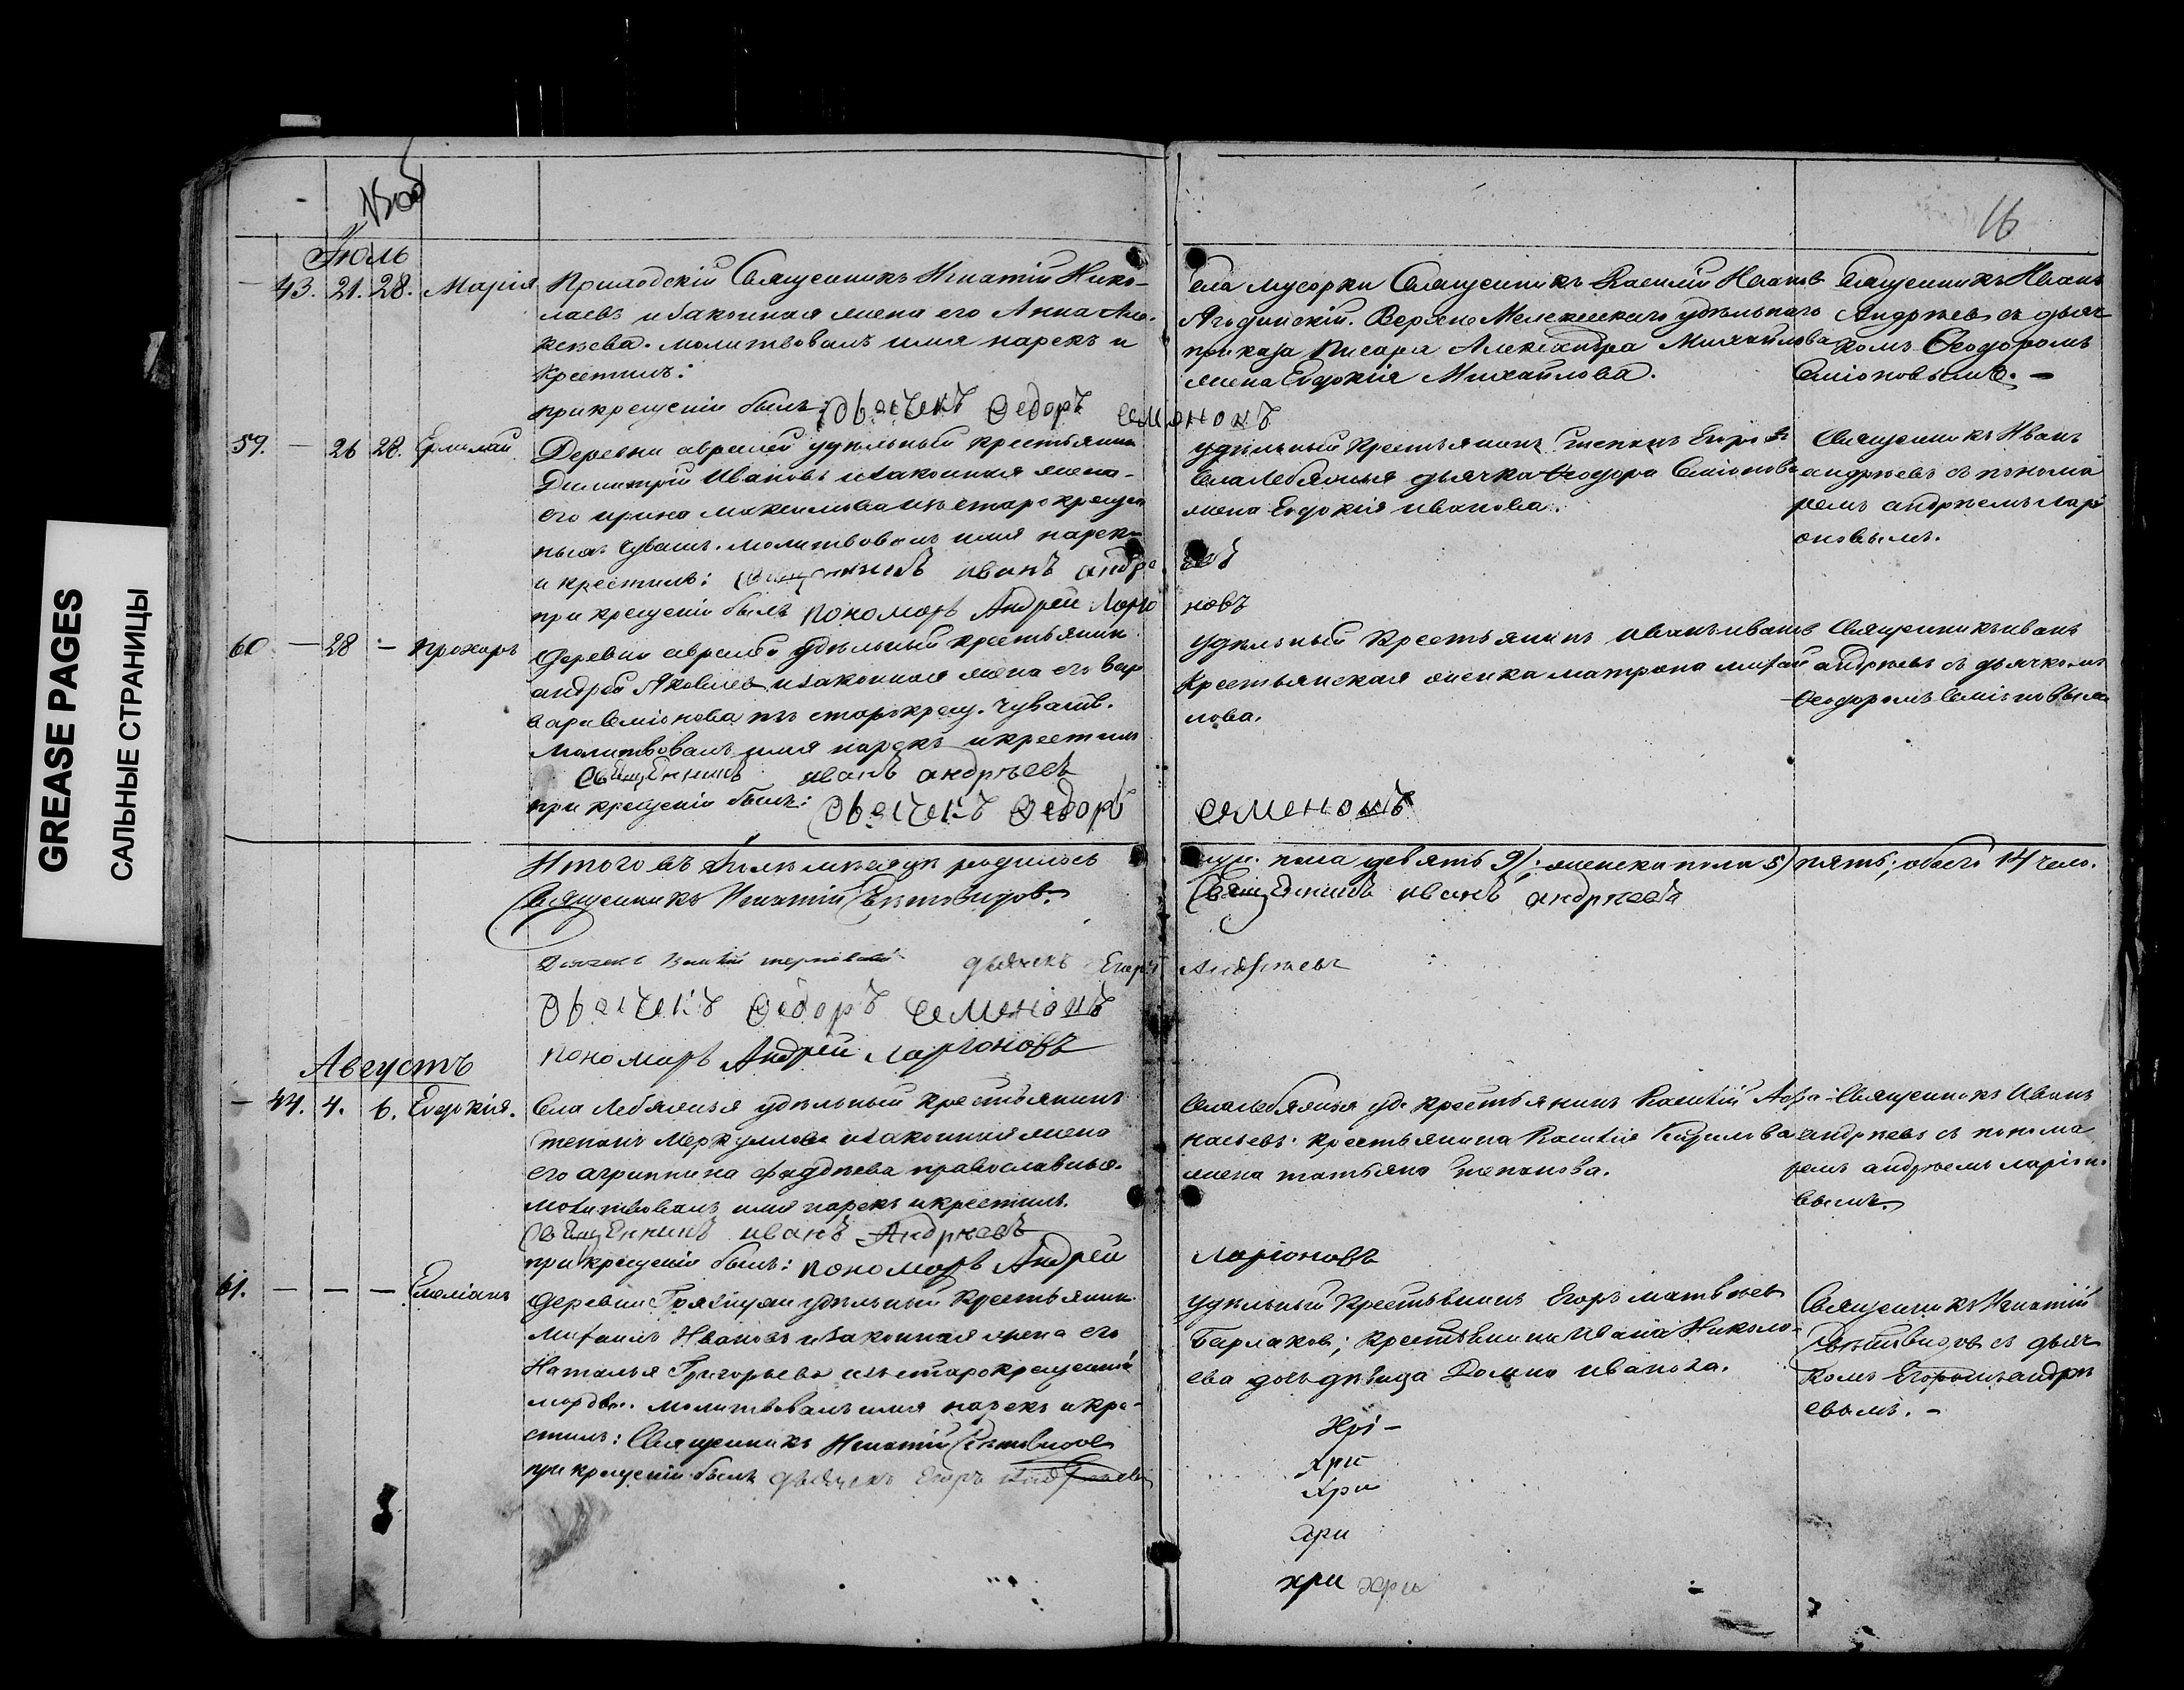 GREASE PAGES
САЛЬНЫЕ СТРАНИЦЫ
16
Іюль
43. 21. 28. Марія
Приходскій Священникъ Игнатій Нико-
лаевъ и законная жена его Анна Але-
ксѣева. молитвовалъ имя нарекъ и
крестилъ:
при крещеніи былъ: дьячекъ Ѳедоръ Семеновъ
села Мусорки Священникъ Василій Ивановъ
Ягодинскій. Верхне Мелекескаго удѣльнаго
приказа Писаря Александра Михайлова
жена Евдокія Михайлова.
Священникъ Иванъ
Андрѣевъ съ дьяч
комъ Ѳеодоромъ
Симіоновымъ. —
59. — 26 28. Ермолай
Деревни авралей удѣльный крестьянинъ
Димитрій Ивановъ и законная жена
его ирина Максимова изъ старокрещен
ныхъ Чувашъ. молитвовалъ имя нарекъ
и крестилъ: Священникъ иванъ андрѣевъ
при крещеніи былъ пономарь Андрей Ларіоновъ
удѣльный Крестьянинъ Степанъ Егоровъ
села Лебяжья дьячка Ѳеодора Симіонова
жена Евдокія иванова.
Священникъ Иванъ
андрѣевъ съ понома
ремъ андрѣемъ лари
оновымъ.
60 — 28 — прохоръ
деревни авралей удѣльный крестьянинъ
андрей Яковлевъ и законная жена его вар
вара Симіонова изъ старокрещ. Чувашъ.
Молитвовалъ имя нарекъ и крестилъ
Священникъ иванъ андрѣевъ
при крещеніи былъ: дьячекъ Ѳедоръ Семеновъ
удѣльный Крестьянинъ иванъ ивановъ
Крестьянская женка матрона михай
лова.
Священникъ иванъ
андрѣевъ съ дьячкомъ
Ѳеодоромъ Симіоновымъ
Итого въ Іюлѣ мѣсяцѣ родилось муж. пола девять 9/; женска пола 5/ пять; обоего 14 чело.
Священникъ Игнатій
Священникъ иванъ андрѣевъ
дьячекъ Егоръ Андрѣевъ
дьячекъ Ѳедоръ Семеновъ
пономарь Андрей Ларіоновъ
Августъ
— 44. 4. 6. Евдокія.
Села Лебяжья удѣльный крестьянинъ
степанъ Меркуловъ и законная жена
его агрипина фаддѣева православныя.
молитвовалъ имя нарекъ и крестилъ.
Священникъ иванъ Андрѣевъ
при крещеніи былъ: пономарь Андрей Ларіоновъ
Села лебяжья уд. крестьянинъ Василій Афа
насьевъ. крестьянина Василія Кирилова
жена татьяна степанова.
Священникъ Иванъ
андрѣевъ съ понома
ремъ андрѣемъ ларіоно
вымъ.
61. — — — Емеліанъ
деревни Грязнухи удѣльный Крестьянинъ
Михаилъ Ивановъ и законная жена его
Наталья Григорьева изъ старокрещеной
мордвы. молитвовалъ имя нарекъ и кре-
стилъ: Священникъ Игнатій
при крещеніи былъ дьячекъ Егоръ Андрѣевъ
удѣльный Крестьянинъ Егоръ матвѣевъ
Барлаковъ; Крестьянина Ивана Никола
ева дочь дѣвица Домна иванова.
Священникъ Игнатій
съ дьяч
комъ Егоромъ андрѣ
евымъ. —
Хрі —
Хри
Хри
хри
хри хри